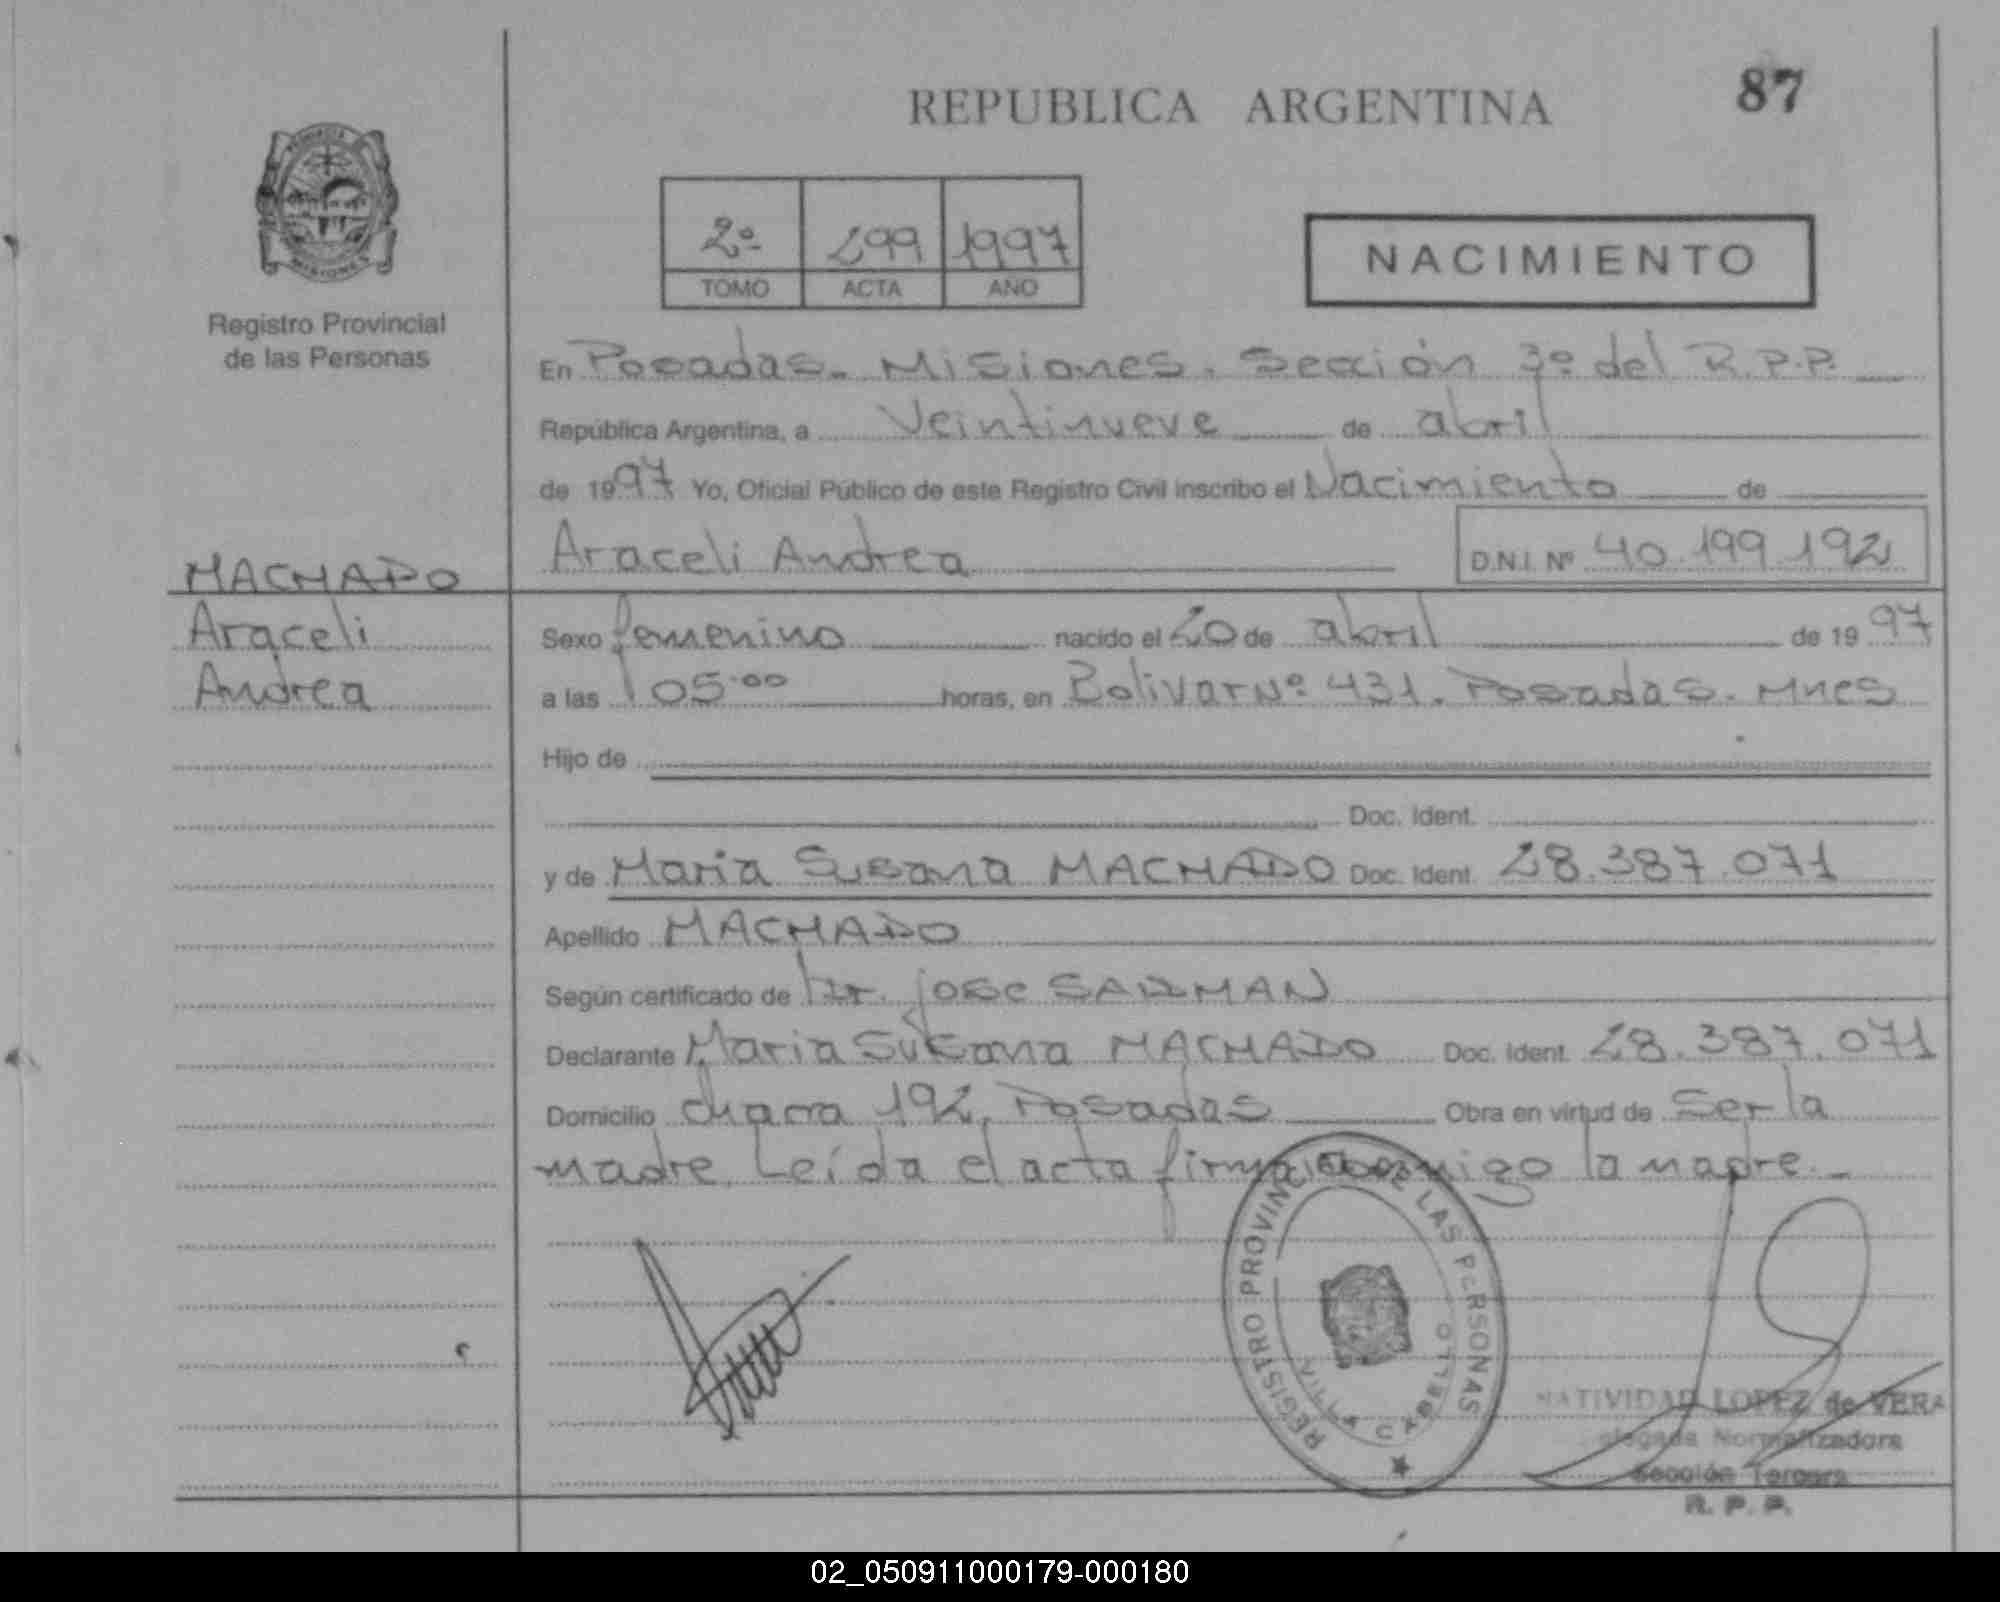 87
REPUBLICA ARGENTINA
2º 299 1997
TOMO ACTA AÑO
NACIMIENTO
MISIONES
Registro Provincial
de las Personas
En Posadas. Misiones. Sección 3º del R.P.P.
República Argentina, a Veintinueve de abril
de 1997 Yo, Oficial Público de este Registro Civil inscribo el Nacimiento de
Araceli Andrea D.N.I. Nº 40.199.192
MACHADO
Araceli
Andrea
Sexo femenino nacido el 20 de abril de 1997
a las 05:00 horas, en Bolivar Nº 431. Posadas. Mnes
Hijo de
Doc. Ident.
y de Maria Susana MACHADO Doc. Ident. 28.387.071
Apellido MACHADO
Según certificado de Dr. Jose
Declarante Maria Susana MACHADO Doc. Ident. 28.387.071
Domicilio chacra 192. Posadas Obra en virtud de Ser la
madre. Leída el acta firma conmigo la madre.
REGISTRO PROVINCIAL DE LAS PERSONAS
VILLA CABELLO
NATIVIDAD LOPEZ de VERA
Delegada Normalizadora
Sección Tercera
R. P. P.
02_050911000179-000180